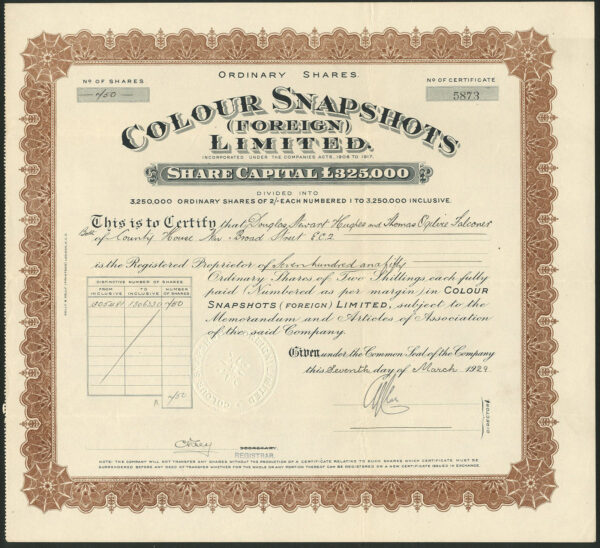 Nº OF SHARES
ORDINARY SHARES.
Nº OF CERTIFICATE
750
5873
COLOUR SNAPSHOTS
(FOREIGN)
LIMITED.
INCORPORATED UNDER THE COMPANIES ACTS, 1908 TO 1917.
SHARE CAPITAL £325,000
DIVIDED INTO
3,250,000 ORDINARY SHARES OF 2/- EACH NUMBERED 1 TO 3,250,000 INCLUSIVE.
This is to Certify that Douglas Stewart Hughes and Thomas Ogilvie Falconer
Both of County House New Broad Street E.C.2
is the Registered Proprietor of Seven hundred and fifty
Ordinary Shares of Two Shillings each fully
paid (Numbered as per margin) in COLOUR
SNAPSHOTS (FOREIGN) LIMITED, subject to the
Memorandum and Articles of Association
of the said Company.
DISTINCTIVE NUMBER OF SHARES.
FROM INCLUSIVE
TO INCLUSIVE
NUMBER OF SHARES
750
750
Given under the Common Seal of the Company
this Seventh day of March 1929
DIRECTORS
SECRETARY
REGISTRAR
NOTE: THE COMPANY WILL NOT TRANSFER ANY SHARES WITHOUT THE PRODUCTION OF A CERTIFICATE RELATING TO SUCH SHARES WHICH CERTIFICATE MUST BE
SURRENDERED BEFORE ANY DEED OF TRANSFER WHETHER FOR THE WHOLE OR ANY PORTION THEREOF CAN BE REGISTERED OR A NEW CERTIFICATE ISSUED IN EXCHANGE.